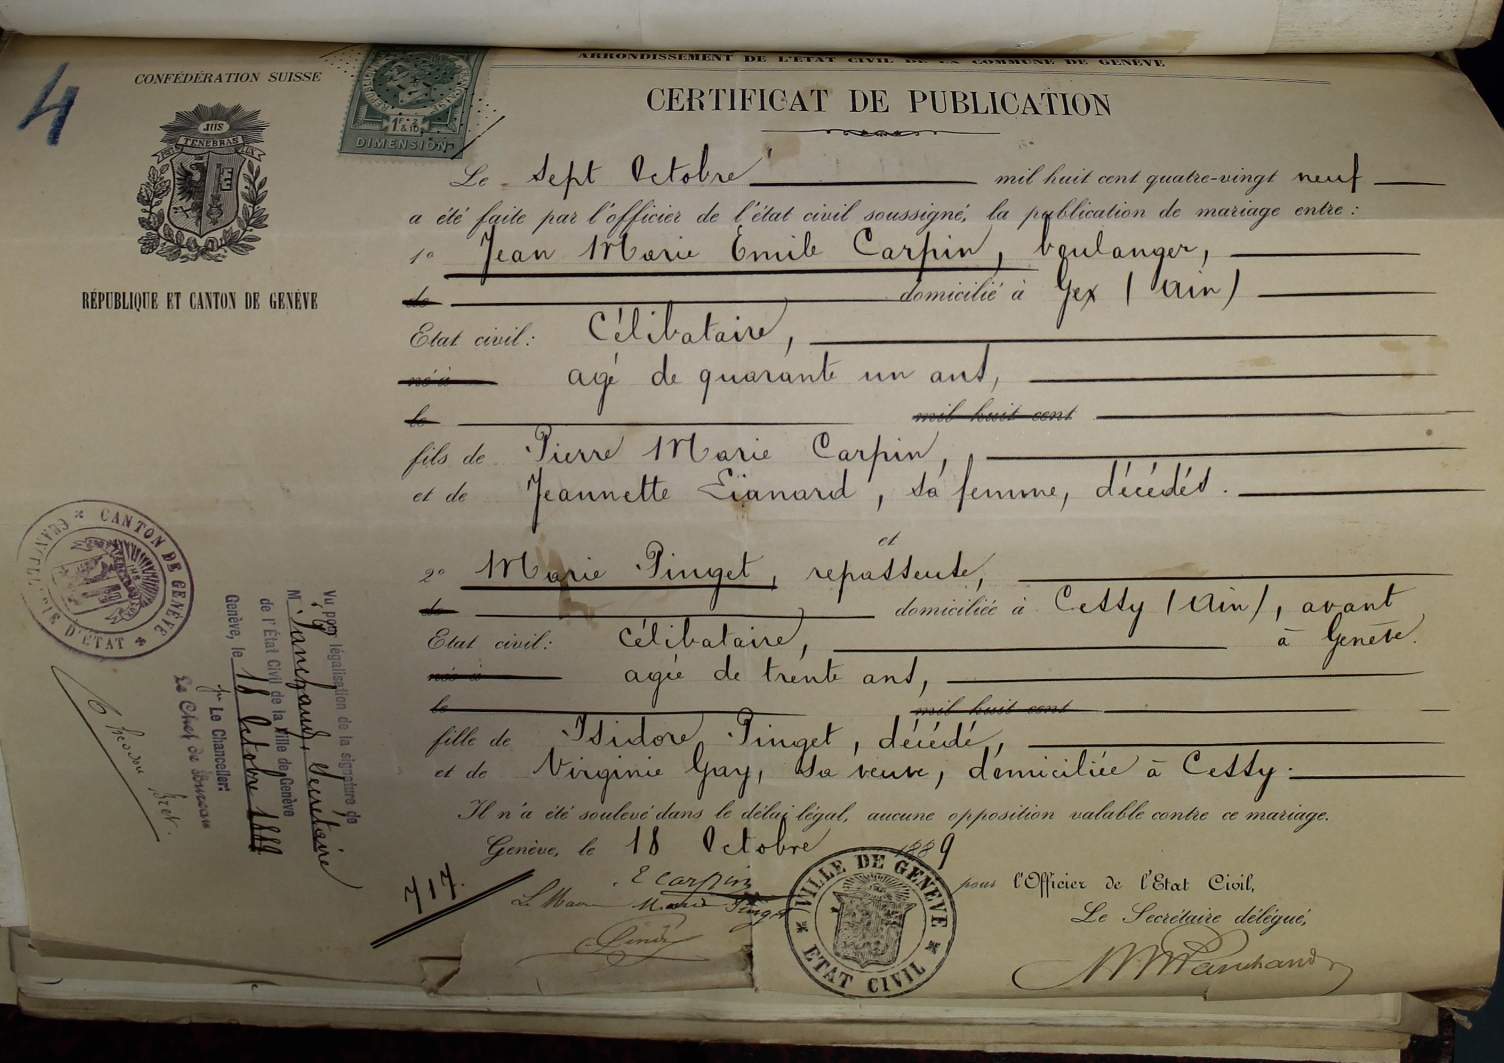 4
CONFÉDÉRATION SUISSE
POST TENEBRAS LUX
RÉPUBLIQUE ET CANTON DE GENÈVE
DIMENSION
ARRONDISSEMENT DE L'ÉTAT CIVIL DE LA COMMUNE DE GENÈVE
CERTIFICAT DE PUBLICATION
Le sept Octobre mil huit cent quatre-vingt neuf
a été faite par l'officier de l'état civil soussigné, la publication de mariage entre:
1º Jean Marie Emile Carpin, boulanger,
de domicilié à Gex (Ain)
Etat civil: Célibataire,
né à agé de quarante un ans,
le mil huit cent
fils de Pierre Marie Carpin,
et de Jeannette , sa femme, décédés.
et
2º Marie Pinget, repasseuse,
de domiciliée à Cessy (Ain), avant
Etat civil: célibataire, à Genève.
née à agée de trente ans,
le mil huit cent
fille de Isidore Pinget, décédé,
et de Virginie Gay, sa veuve, domiciliée à Cessy.
Il n'a été soulevé dans le délai légal, aucune opposition valable contre ce mariage.
Genève, le 18 Octobre 1889
717.
E Carpin
Le Maire Marie Pinget
VILLE DE GENÈVE
ETAT CIVIL
pour l'Officier de l'Etat Civil,
Le Secrétaire délégué,
CANTON DE GENÈVE
CHANCELLERIE D'ÉTAT
Vu pour légalisation de la signature de
M. , Secrétaire
de l'État Civil de la Ville de Genève
Genève, le 18 Octobre 1889
pr Le Chancelier:
Le Chef de Bureau